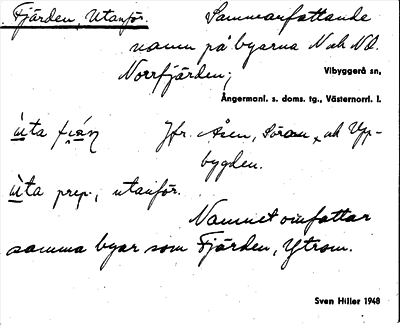 Fjärden, Utanför. Sammanfattande
namn på byarna N och NÖ.
Norrfjärden;
Vibyggerå sn,
Ångermanl. s. doms. tg., Västernorrl. l.
ùta
Jfr. Åsen, och Upp-
bygden.
ùta prep., utanför.
Namnet omfattar
samma byar som Fjärden, Ytrom.
Sven Hiller 1948